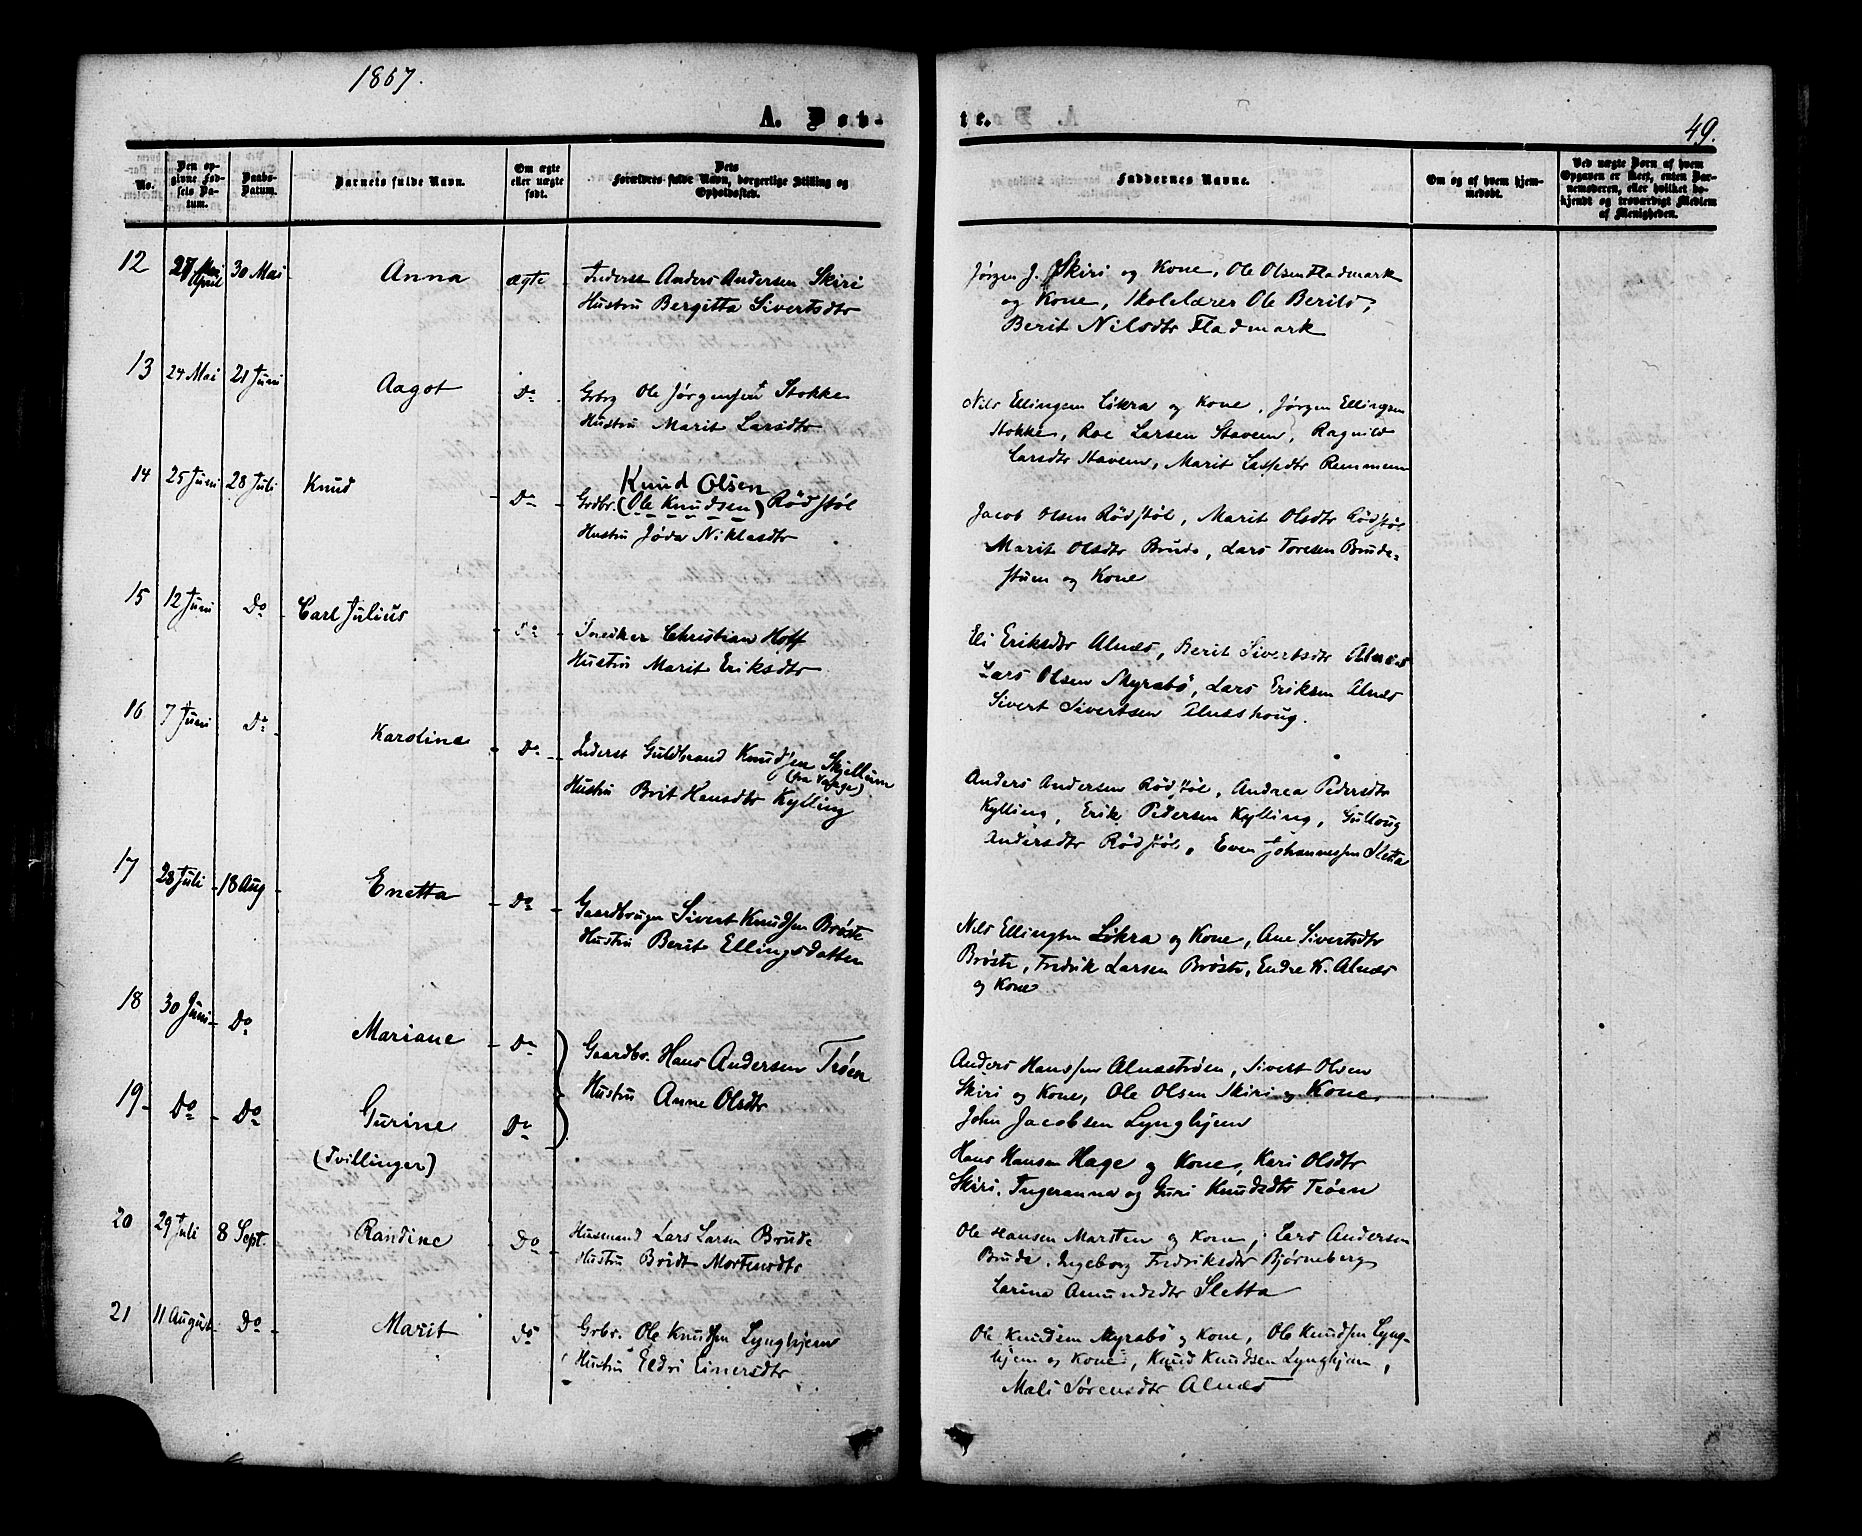 1867.
A. Døb-
te.
49.
No.
Den opgivne Fødsels Datum.
Daabs-Datum.
Barnets fulde Navn.
Om ægte eller uægte født.
Dets Forældres fulde Navn, borgerlige Stilling og Opholdssted.
Faddernes Navne.
Om og af hvem hjemmedøbt.
Ved uægte Børn af hvem Opgaven er skeet, enten Barnemoderen, eller hvilket bekjendt og troværdigt Medlem af Menigheden.
12 27 April 30 Mai Anna ægte Inderst Anders Andersen Skiri
Hustru Bergitta Sivertsdtr
Jørgen J. Skiri og Kone, Ole Olsen Fladmark
og Kone, Skolelærer Ole Berild,
Berit Nilsdtr Fladmark
13 24 Mai 21 Juni Aagot Do Grbrg Ole Jørgensen Stokke
Hustru Marit Larsdtr
Nils Ellingsen Løkra og Kone, Jørgen Ellingsen
Stokke, Roe Larsen Stavem, Ragnild
Larsdtr Stavem, Marit Larsdtr Remmem
14 25 Juni 28 Juli Knud Do Knud Olsen
Grdbr. (Ole Knudsen) Rödstöl
Hustru Jøda Niklasdtr
Jacob Olsen Rödstöl, Marit Olsdtr Rödstöl
Marit Olsdtr Brude, Lars Toresen Brude-
stuen og Kone
15 12 Juni Do Carl Julius Do Snedker Christian Hoff
Hustru Marit Eriksdtr
Eli Eriksdtr Alnæs, Berit Sivertsdtr Alnæs
Lars Olsen Myrabö, Lars Eriksen Alnæs
Sivert Sivertsen Alnæshoug.
16 7 Juni Do Karoline Do Inderst Guldbrand Knudsen Skjellum
(fra Vaage)
Hustru Brit Hansdtr Kylling
Anders Andersen Rödstöl, Andrea Pedersdtr
Kylling, Erik Pedersen Kylling, Gulloug
Andersdtr Rödstöl, Even Johannessen Sletta
17 28 Juli 18 Aug Enetta Do Gaardbruger Sivert Knudsen Brøste
Hustru Berit Ellingsdatter
Nils Ellingsen Løkra og Kone, Ane Sivertsdtr
Brøste, Fredrik Larsen Brøste, Endre K. Alnæs
og Kone
18 30 Juni Do Mariane Do Gaardbr. Hans Andersen Trøen
Hustru Anne Olsdtr
Anders Hanssen Alnæstrøen, Sivert Olsen
Skiri og Kone, Ole Olsen Skiri og Kone,
John Jacobsen Lynghjem
19 Do Do Gurine Do
(Tvillinger)
Hans Hansen Hage og Kone, Kari Olsdtr
Skiri, Ingeranna og Guri Knudsdtr Trøen
20 29 Juli 8 Sept. Randine Do Husmand Lars Larsen Brude
Hustru Bridt Mortensdtr
Ole Hansen Marsten og Kone, Lars Andersen
Brude, Ingeborg Fredriksdtr Bjørneberg
Larine Amundsdtr Sletta
21 11 August Do Marit Do Grbr. Ole Knudsen Lynghjem
Hustru Eldri Einersdtr
Ole Knudsen Myrabö og Kone, Ole Knudsen Lyng-
hjem og Kone, Knud Knudsen Lynghjem,
Mali Sørensdtr Alnæs